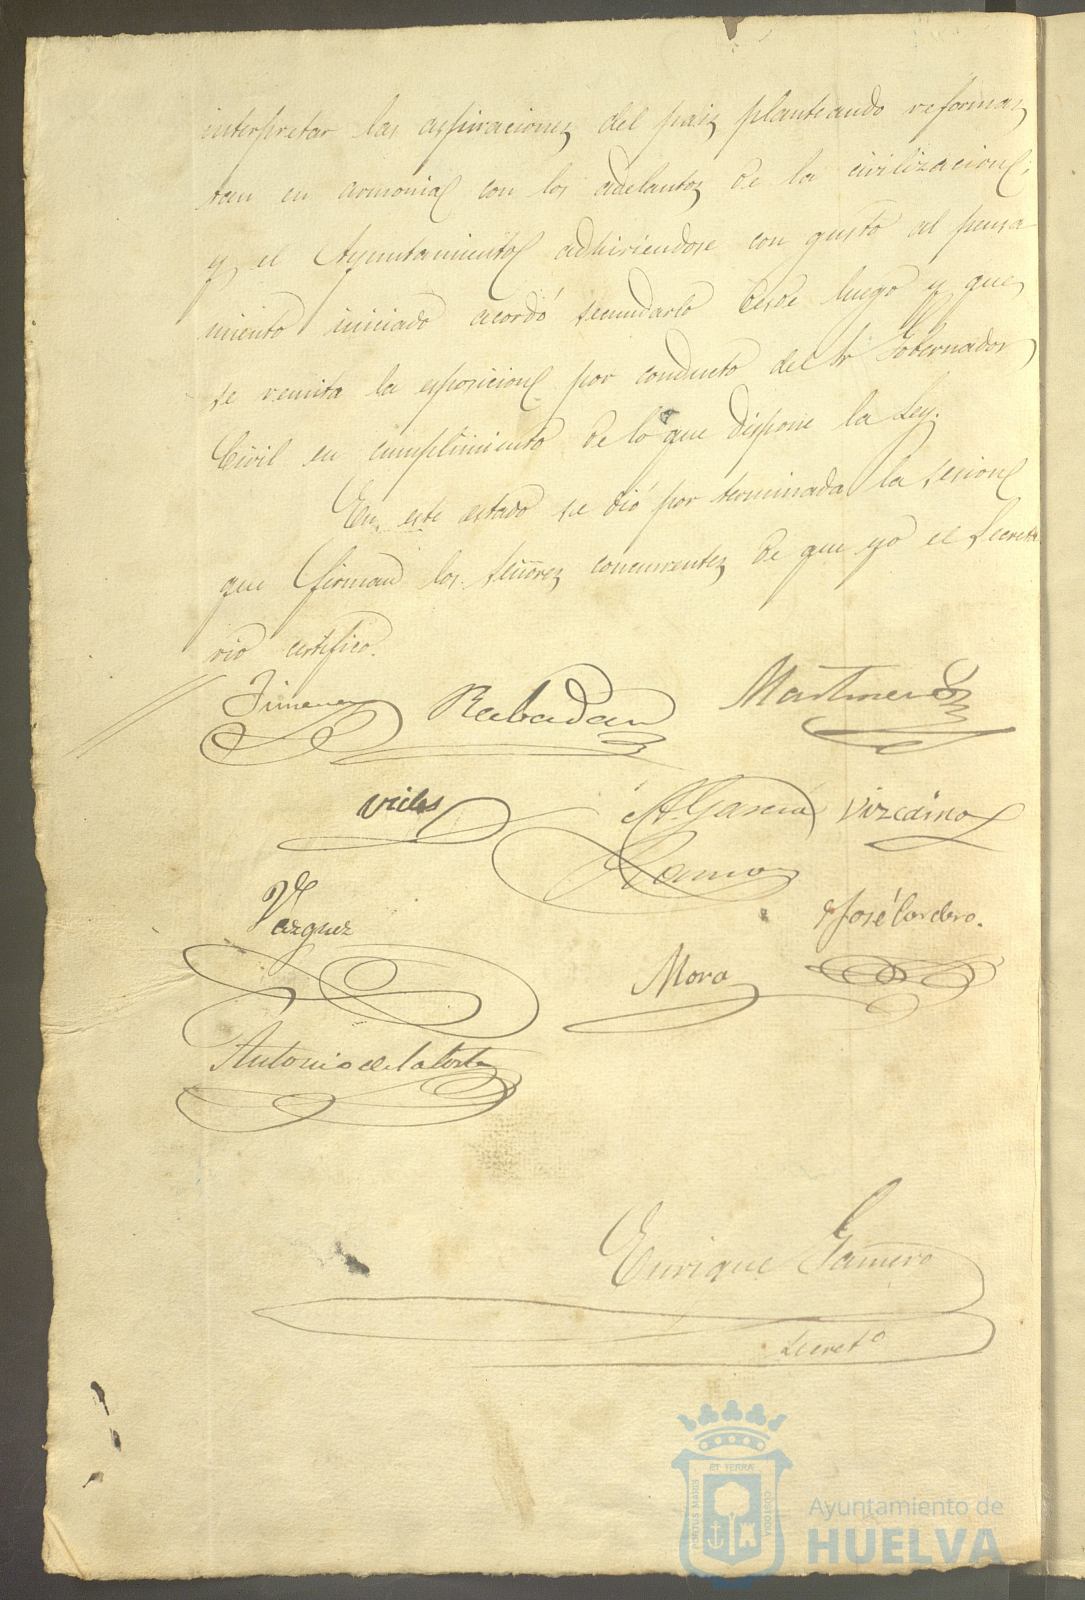 interpretar las aspiraciones del pais planteando reformas
tan en armonia con los adelantos de la civilizacion;
y el Ayuntamiento adhiriendose con gusto al pensa
miento iniciado acordó secundarlo desde luego y que
se remita la esposicion por conducto del Sr Gobernador
Civil en cumplimiento de lo que dispone la Ley.
En este estado se dió por terminada la sesion
que firman los Señores concurrentes de que yo el Secreta
rio certifico.
Jimenez Rabadan Martinez
A. Garcia Vizcaino
Ramos
Vazquez
José Cordero.
Mora
Antonio de la Corte
Enrique Gamero
Secretº
ET TERRAE
PORTUS MARIS
CUSTODIA
Ayuntamiento de
HUELVA